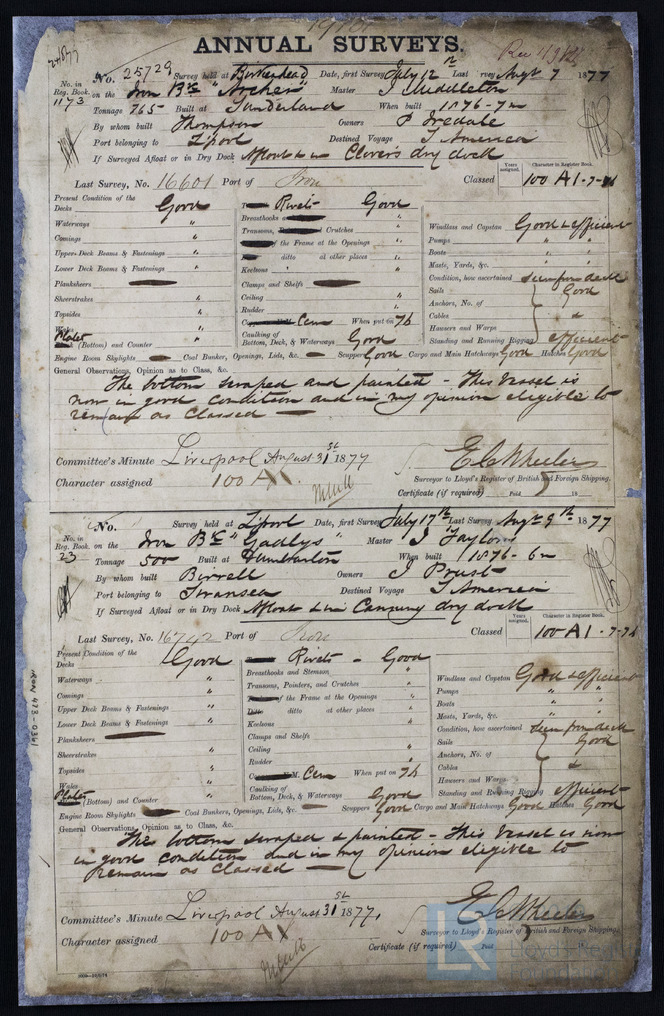 ANNUAL SURVEYS.
No. 25729 Survey held at Birkenhead Date, first Survey July 12th Last Survey Augt 7 1877
No. in Reg. Book. on the Iron Bk "Archer" Master J Middleton
1173 Tonnage 765 Built at Sunderland When built 1876-7m
By whom built Thompson Owners P Iredale
Port belonging to Lpool Destined Voyage S America
If Surveyed Afloat or in Dry Dock Afloat & in Clover's dry dock
Last Survey, No. 16601 Port of Iron Classed Years assigned. Character in Register Book. 100 A1-7-76
Present Condition of the
Decks Good Rivets Good
Waterways " Breasthooks "
Comings " Transoms, Crutches " Windlass and Capstan Good & efficient
Upper Deck Beams & Fastenings " of the Frame at the Openings " Pumps " "
Lower Deck Beams & Fastenings " ditto at other places " Boats " "
Planksheers Keelsons " Masts, Yards, &c. " "
Sheerstrakes " Clamps and Shelfs Condition, how ascertained seen from deck
Topsides " Ceiling " Sails Good
Wales " Rudder " Anchors, No. of
Plates (Bottom) and Counter " Cem When put on 76 Cables "
Caulking of Bottom, Deck, & Waterways Good Hawsers and Warps
Standing and Running Rigging efficient
Engine Room Skylights Coal Bunker, Openings, Lids, &c. Scuppers Good Cargo and Main Hatchways Good Hatches Good
General Observations, Opinion as to Class, &c.
The bottom scraped and painted - This Vessel is
now in good condition and in my opinion eligible to
remain as Classed
Committee's Minute Liverpool August 31st 1877
Character assigned 100 A1
E C Wheeler
Surveyor to Lloyd's Register of British and Foreign Shipping.
Certificate (if required) Paid 18
No. Survey held at Lpool Date, first Survey July 17th Last Survey Augt 9th 1877
No. in Reg. Book. on the Iron Bk "Gadlys" Master J Taylor
23 Tonnage 500 Built at Dumbarton When built 1876-6m
By whom built Birrell Owners J Prust
Port belonging to Swansea Destined Voyage S America
If Surveyed Afloat or in Dry Dock Afloat & in Canning dry dock
Last Survey, No. 16742 Port of Iron Classed Years assigned. Character in Register Book. 100 A1-7-76
Present Condition of the
Decks Good Rivets - Good
Waterways " Breasthooks and Stemson "
Comings " Transoms, Pointers, and Crutches " Windlass and Capstan Good & efficient
Upper Deck Beams & Fastenings " of the Frame at the Openings " Pumps " "
Lower Deck Beams & Fastenings " Ditto ditto at other places " Boats " "
Planksheers Keelsons " Masts, Yards, &c. " "
Sheerstrakes " Clamps and Shelfs Condition, how ascertained seen from deck
Topsides " Ceiling " Sails Good
Wales " Rudder " Anchors, No. of
Plates (Bottom) and Counter " Cem When put on 76 Cables "
Caulking of Bottom, Deck, & Waterways Good Hawsers and Warps
Standing and Running Rigging efficient
Engine Room Skylights Coal Bunkers, Openings, Lids, &c. Scuppers Good Cargo and Main Hatchways Good Hatches Good
General Observations, Opinion as to Class, &c.
The bottom scraped & painted - This Vessel is now
in good condition and in my opinion eligible to
remain as Classed
Committee's Minute Liverpool August 31st 1877,
Character assigned 100 A1
E C Wheeler
Surveyor to Lloyd's Register of British and Foreign Shipping.
Certificate (if required) Paid
IRON 473-0361